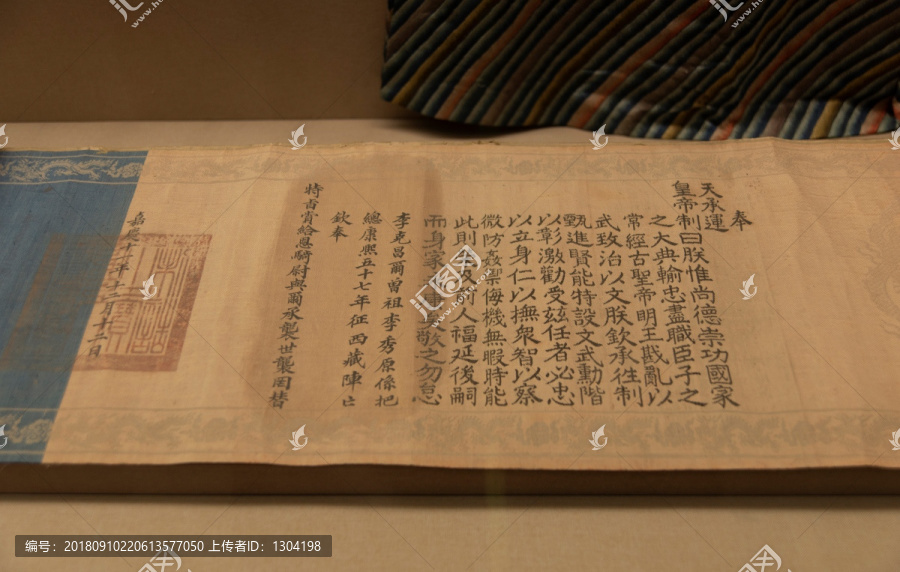 奉
天承運
皇帝制曰朕惟尚德崇功國家
之大典輸忠盡職臣子之
常經古聖帝明王戡亂以
武致治以文朕欽承往制
甄進賢能特設文武勳階
以彰激勸受茲任者必忠
以立身仁以撫眾智以察
微防姦禦侮機無暇時能
此則榮及前人福延後嗣
而身家永建矣敬之勿怠
李克昌爾曾祖李秀原係把
總康熙五十七年征西藏陣亡
欽奉
特旨賞給恩騎尉與爾承襲世襲罔替
嘉慶十年十二月十二日
编号：20180910220613577050 上传者ID：1304198
www.hui